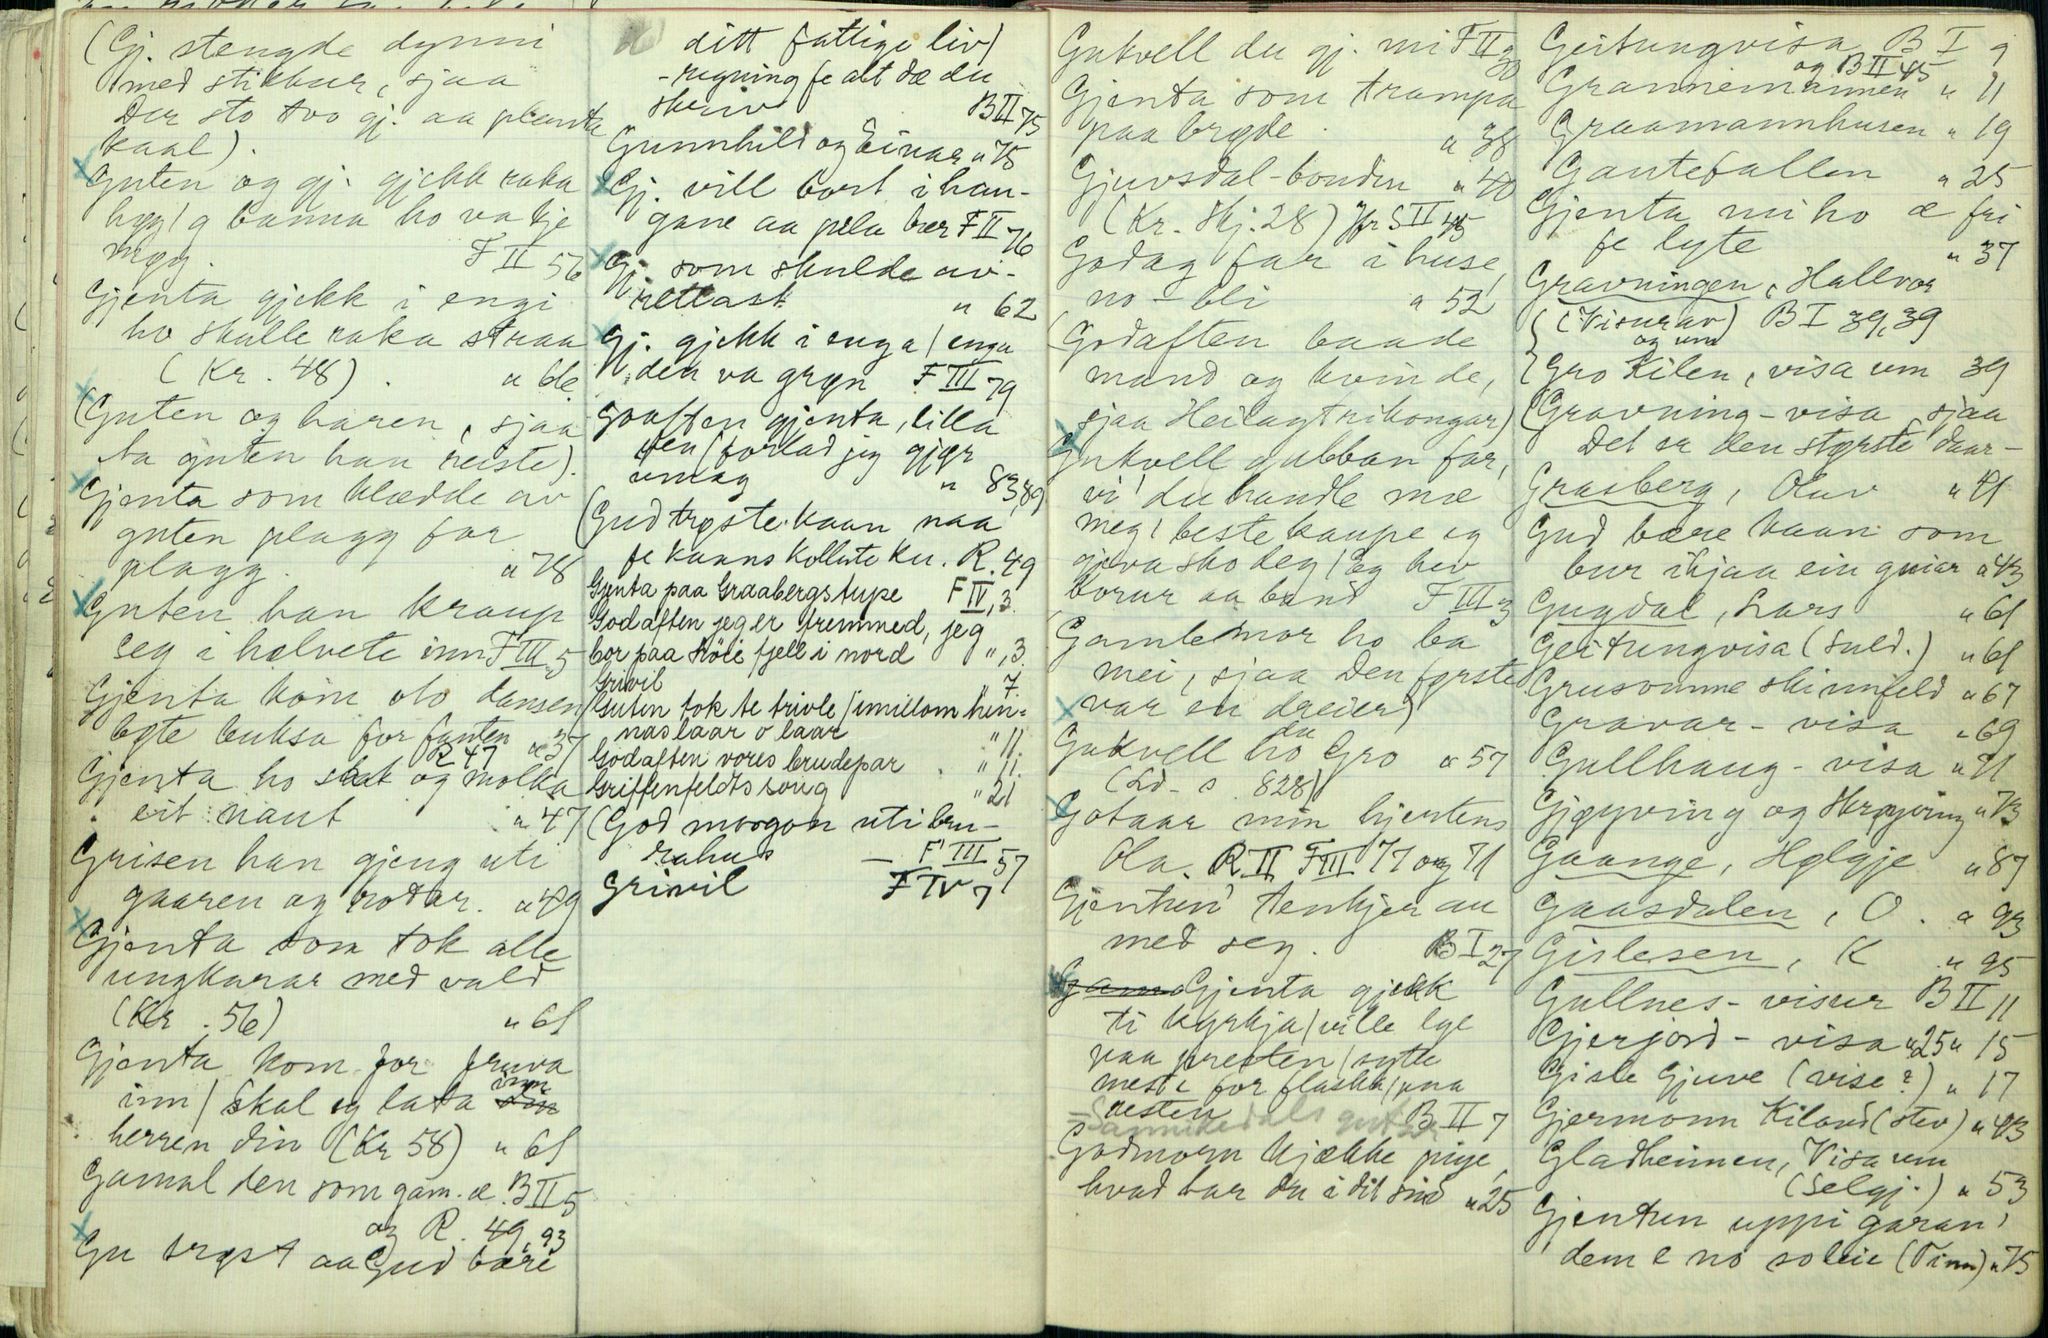 (Gj. stengde dynni
med stikkur, sjaa
Der sto tvo gj. aa planta
kaal).
Guten og gj. gjekk raka
høy / g banna ho va kje
møy. F II 56
Gjenta gjekk i engi
ho skulle raka straa
(Kr. 48). " 60
(Guten og haren, sjaa
Aa guten han reiste).
Gjenta som klædde av
guten plagg for
plagg. " 78
Guten han kraup
seg i helvete inn F III 5
Gjenta kom oto dansen
bytte buksa for fanten " 37
R 47
Gjenta ho skat og molka
eit naut " 47
Grisen han gjeng uti
gaaren og rotar. " 49
Gjenta som tok alle
ungkarar med vald
(Kr. 56) " 61
Gjenta kom for fruva
inn / Skal eg lata inn
herren din (Kr 58) " 61
Gamal den som gam. æ. B II 5
og R. 49, 93
Gu trøst aa Gud bære
ditt fattige liv /
- regning fe alt dæ du
skriv B II 75
Gunnhild og Einar " 75
Gj. vill bort i han-
gane aa pela bær F II 76
Gj. som skulde av-
rettast " 62
Gj. gjekk i enga / enga
den va grøn F III 79
Goaften gjenta, lilla
den / forlad jeg gjør
umag " 83, 89
(Gud trøste kaan naa
fe kaans kollute ku. R. 49
Gjenta paa Graabergstupe F IV, 3.
God aften jeg er fremmed, jeg
bor paa höie fjell i nord ", 3.
Grivil " 7.
Guten tok te trivle / imillom hen-
nas laar o laar " 11.
God aften vores brudepar " 11.
Griffenfeldts song " 21
(God morgon uti bru-
rahus — F III 57
Grivil F IV 7
Gukvell du gj. mi F II 30
Gjenta som trampa
paa brøde. " 38
Gjuvsdal-bonden " 40
(Kr. Skj. 28) Jfr S II 45
Godag far i huse,
no - bli " 52
(Godaften baade
mand og kvinde,
sjaa Heilagtrikongar)
Gukvell gubban far,
vi' du handle mæ
meg / beste kaupe eg
gjeva sko deg / Eg hev
borur aa band F III 3
(Gamlemor ho ba
mei, sjaa Den første
var en dreier)
du
Gukvell ho Gro " 57
(Ld - s 828)
Gotaar min hjertens
Ola. R II F III 77 og 71
Gjentun' tenkjer au
med seg. B I 27
Gjenta gjekk
ti kyrkja / ville lye
paa presten / sytte
mest for flaska /
æsten B II 7
Godmorn kjække pige,
hvad har du i dit sind " 25
Geitungvisa B I 9
og B II 45
Grannemannen " 11
Graamannhusen " 19
Gauteballen " 25
Gjenta mi ho æ fri
fe lyte " 37
Gravningen, Hallvor
(Visurav) B I 39, 39
og um
Gro Kilen, visa um 39
(Gravning-visa sjaa
Det er den største daar-
Grasberg, Olav " 41
Gud bære kaan som
bur ihjaa ein gniar " 43
Gugdal, Lars " 61
Geitungvisa (Suld.) " 61
Grusomme skinnfeld " 67
Gravar-visa " 69
Gullhaug-visa " 71
Gjøyving og Skrøyving " 73
Gaange, Hølgje " 87
Gaasdalen, O. " 93
Gislesen, K " 95
Gullnes-visur B II 11
Gjerjord-visa " 25 " 15
Gisle Gjuve (vise?) " 17
Gjermonn Kiland (stev) " 43
Gladheimen, Visa um
(Selgj.) " 53
Gjentun uppi garan'
dem e no so leie (Tinn) " 75